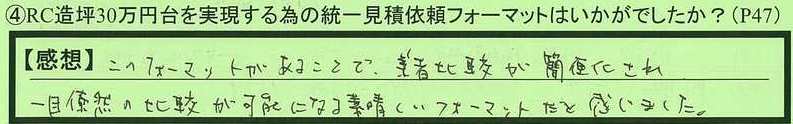 ④RC造坪30万円台を実現する為の統一見積依頼フォーマットはいかがでしたか？(P47)
【感想】このフォーマットがあることで、業者比較が簡便化され
一目瞭然の比較が可能になる素晴しいフォーマットだと感じました。